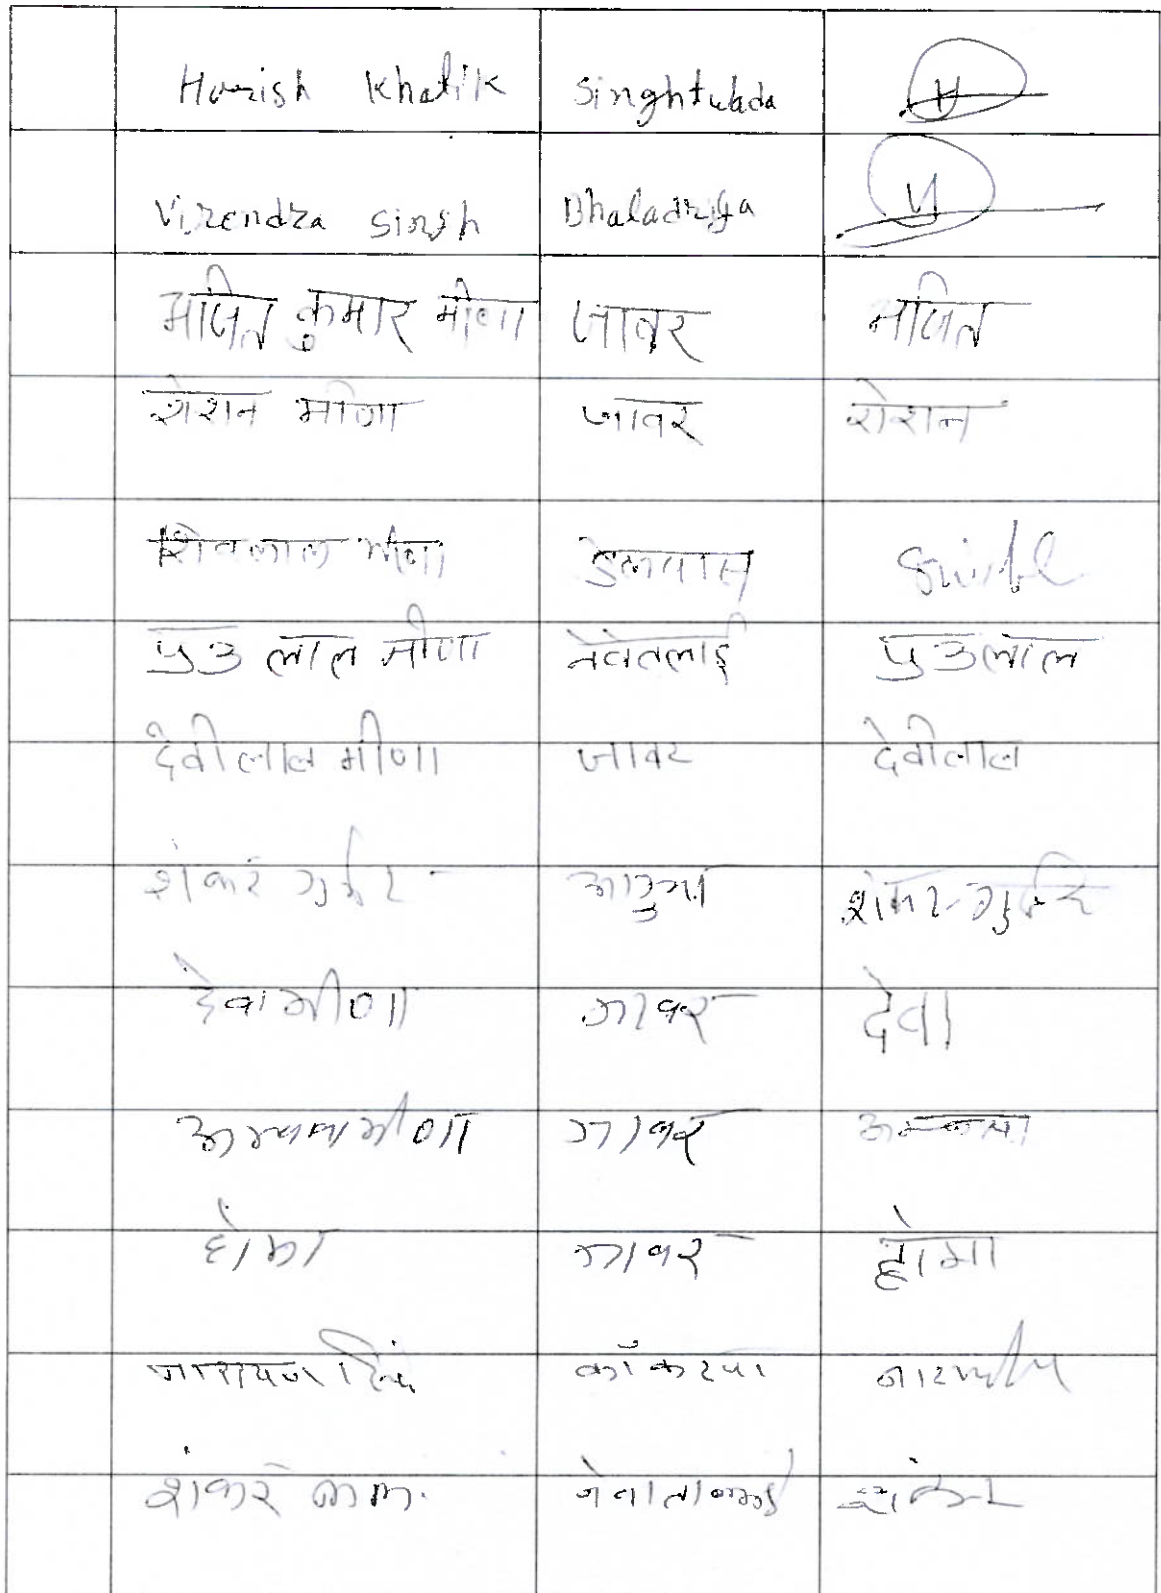 Harish Khatik Singhtwada H
Virendra Singh Bhaladriya V
अजित कुमार मीणा जावर अजित
रोशन मीणा जावर रोशन
शिवलाल मीणा
लाल मीणा नेवातलाई
देवीलाल मीणा जावर देवीलाल
शंकर गुर्जर शंकर गुर्जर
देवा मीणा जावर देवा
मीणा जावर
होमा जावर होमा
नारायण सिंह
शंकर लाल नेवातलाई शंकर